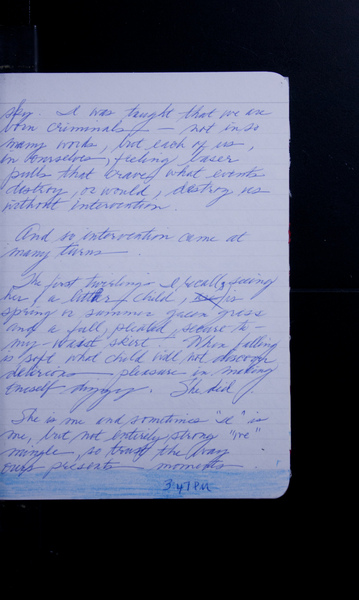 sky. I was taught that we are
born criminals — not in so
many words, but each of us,
in ourselves, feeling baser
pulls that crave what events
destroy, or would, destroy us
without intervention.
And so intervention came at
many turns.
The first twirling I recall, seeing
her, a little child, is
spring or summer green grass
and a full, pleated, secure to-
my-waist skirt. When falling
is soft what child will not discover
delirious pleasure in making
oneself dizzy. She did.
She is me and sometimes "I" is
me, but not entirely strong "we"
mingle, so the way
ours presents moments
3:47 PM